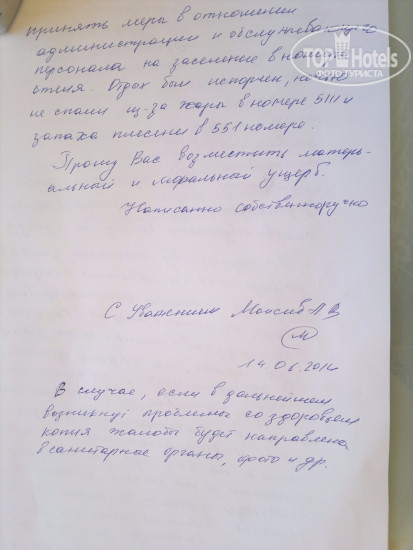 TopHotels
ФОТО ТУРИСТА
принять меры в отношении
администрации и обслуживающего
персонала на заселение в номер
Отдых был испорчен,
не спали из-за жары в номере 5111 и
запаха плесени в 551 номере.
Прошу Вас возместить матерь-
альный и моральный ущерб.
Написанно собственноручно
С Уважением
14.06.2012
В случае, если в дальнейшем
возникнут проблемы со здоровьем
копия жалобы будет направлена
в санитарные органы, фото и др.